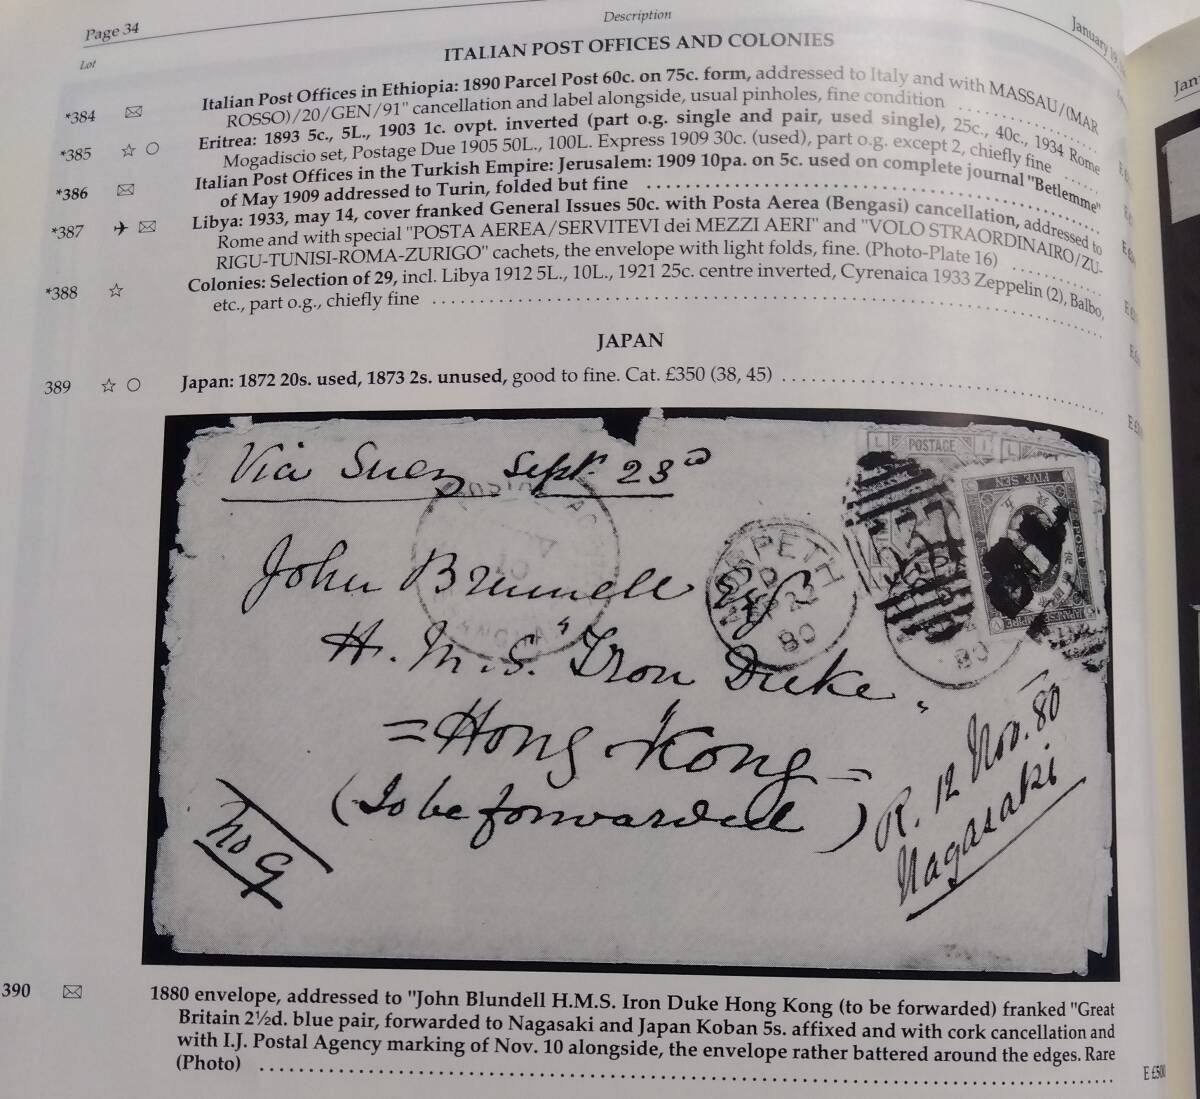 Page 34
Description
January 19,
Lot
ITALIAN POST OFFICES AND COLONIES
*384 Italian Post Offices in Ethiopia: 1890 Parcel Post 60c. on 75c. form, addressed to Italy and with MASSAU/(MAR
ROSSO)/20/GEN/91" cancellation and label alongside, usual pinholes, fine condition ............
*385 Eritrea: 1893 5c., 5L., 1903 1c. ovpt. inverted (part o.g. single and pair, used single), 25c., 40c., 1934 Rome
Mogadiscio set, Postage Due 1905 50L., 100L. Express 1909 30c. (used), part o.g. except 2, chiefly fine ......
*386 Italian Post Offices in the Turkish Empire: Jerusalem: 1909 10pa. on 5c. used on complete journal "Betlemme"
of May 1909 addressed to Turin, folded but fine ............
*387 Libya: 1933, may 14, cover franked General Issues 50c. with Posta Aerea (Bengasi) cancellation, addressed to
Rome and with special "POSTA AEREA/SERVITEVI dei MEZZI AERI" and "VOLO STRAORDINAIRO/ZU-
RIGU-TUNISI-ROMA-ZURIGO" cachets, the envelope with light folds, fine. (Photo-Plate 16) ............
*388 Colonies: Selection of 29, incl. Libya 1912 5L., 10L., 1921 25c. centre inverted, Cyrenaica 1933 Zeppelin (2), Balbo,
etc., part o.g., chiefly fine ............
JAPAN
389 Japan: 1872 20s. used, 1873 2s. unused, good to fine. Cat. £350 (38, 45) ............
Via Suez Sept. 23rd
POSTAGE
FIVE SEN
MORPETH
80
John Brunnell Esqr
H.M.S. "Iron Duke"
=Hong Kong=
(To be forwarded)
R. 12 Nov. 80
Nagasaki
390 1880 envelope, addressed to "John Blundell H.M.S. Iron Duke Hong Kong (to be forwarded) franked "Great
Britain 2½d. blue pair, forwarded to Nagasaki and Japan Koban 5s. affixed and with cork cancellation and
with I.J. Postal Agency marking of Nov. 10 alongside, the envelope rather battered around the edges. Rare
(Photo) ............ E £500